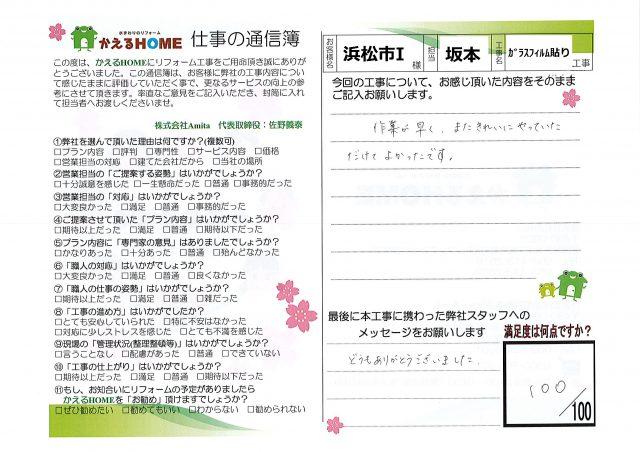 水まわりのリフォーム
かえるHOME 仕事の通信簿
この度は、かえるHOMEにリフォーム工事をご用命頂き誠にありが
とうございました。この通信簿は、お客様に弊社の工事内容につい
て感じたままに評価していただく事で、更なるサービスの向上の参
考にさせて頂きます。率直なご意見をご記入いただき、封筒に入れ
て担当者へお渡しくださいませ。
株式会社Amita 代表取締役：佐野義泰
①弊社を選んで頂いた理由は何ですか?(複数可)
□プラン内容 □評判 □専門性 □サービス内容 □価格
□営業担当の対応 □建てた会社だから □当社の場所
②営業担当の「ご提案する姿勢」はいかがでしょうか？
□十分誠意を感じた □一生懸命だった □普通 □事務的だった
③営業担当の「対応」はいかがでしょうか？
□大変良かった □満足 □普通 □事務的だった
④ご提案させて頂いた「プラン内容」はいかがでしょうか？
□期待以上だった □満足 □普通 □期待以下だった
⑤プラン内容に「専門家の意見」はありましたでしょうか？
□かなりあった □十分あった □普通 □殆んどなかった
⑥「職人の対応」はいかがでしょうか？
□大変良かった □満足 □普通 □良くなかった
⑦「職人の仕事の姿勢」はいかがでしょうか？
□期待以上だった □満足 □普通 □雑だった
⑧「工事の進め方」はいかがでしたか？
□とても安心していられた □特に不安はなかった
□対応に少しストレスを感じた □とても不満を感じた
⑨現場の「管理状況(整理整頓等)」はいかがでしょうか？
□言うことなし □配慮があった □普通 □できていない
⑩「工事の仕上がり」はいかがでしょうか？
□期待以上だった □満足 □普通 □期待以下だった
⑪もし、お知合いにリフォームの予定がありましたら
かえるHOMEを「お勧め」頂けますでしょうか？
□ぜひ勧めたい □勧めてもいい □わからない □勧められない
お客様名 浜松市I 様 担当 坂本 工事名 ｶﾞﾗｽﾌｨﾙﾑ貼り 工事
今回の工事について、お感じ頂いた内容をそのまま
ご記入お願いします。
作業が早く、またきれいにやっていた
だけてよかったです。
最後に本工事に携わった弊社スタッフへの
メッセージをお願いします
どうもありがとうございました。
満足度は何点ですか？
100
/100